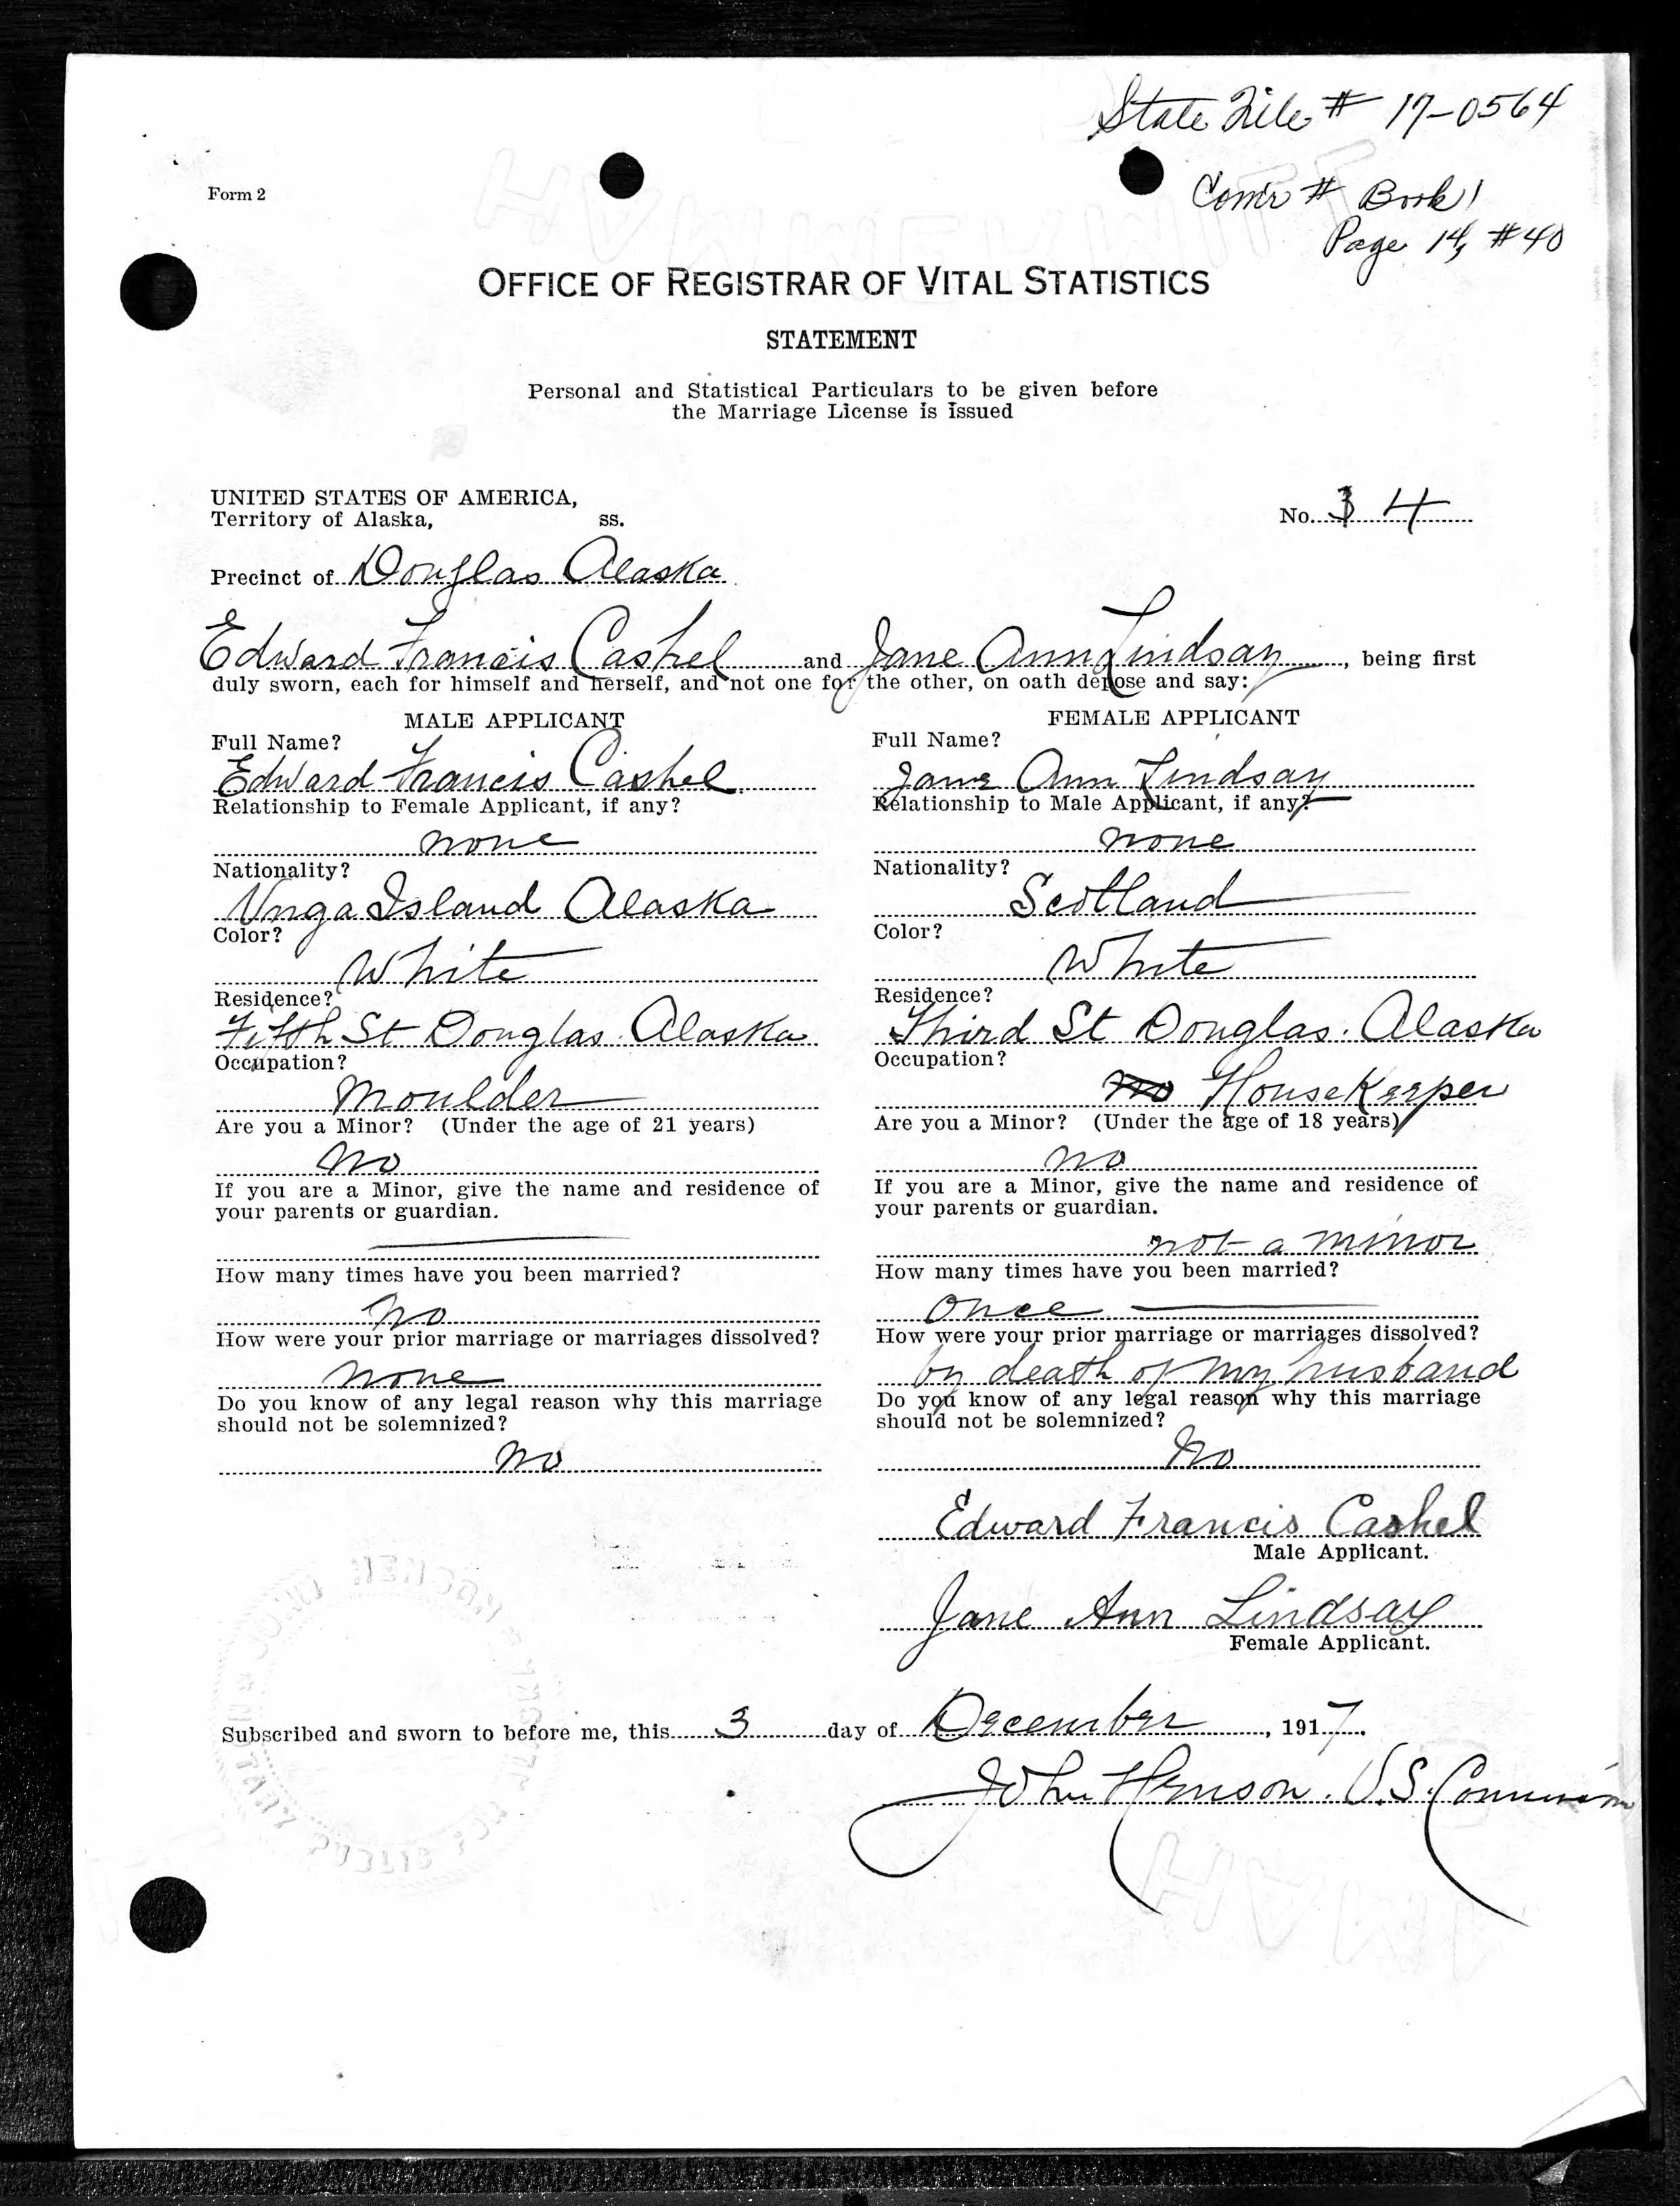 State File # 17-0564
Form 2
Comr # Book 1
Page 14, #40
OFFICE OF REGISTRAR OF VITAL STATISTICS
STATEMENT
Personal and Statistical Particulars to be given before
the Marriage License is issued
UNITED STATES OF AMERICA,
Territory of Alaska, ss.
No. 3 4
Precinct of Douglas Alaska
Edward Francis Cashel and Jane Ann Lindsay, being first
duly sworn, each for himself and herself, and not one for the other, on oath depose and say:
MALE APPLICANT
Full Name?
Edward Francis Cashel
Relationship to Female Applicant, if any?
none
Nationality?
Unga Island Alaska
Color?
White
Residence?
Fifth St Douglas. Alaska
Occupation?
Moulder
Are you a Minor? (Under the age of 21 years)
No
If you are a Minor, give the name and residence of
your parents or guardian.
How many times have you been married?
No
How were your prior marriage or marriages dissolved?
none
Do you know of any legal reason why this marriage
should not be solemnized?
No
FEMALE APPLICANT
Full Name?
Jane Ann Lindsay
Relationship to Male Applicant, if any?
none
Nationality?
Scotland
Color?
White
Residence?
Third St Douglas. Alaska
Occupation?
no HouseKeeper
Are you a Minor? (Under the age of 18 years)
no
If you are a Minor, give the name and residence of
your parents or guardian.
not a minor
How many times have you been married?
Once
How were your prior marriage or marriages dissolved?
by death of my husband
Do you know of any legal reason why this marriage
should not be solemnized?
No
Edward Francis Cashel
Male Applicant.
Jane Ann Lindsay
Female Applicant.
Subscribed and sworn to before me, this 3 day of December, 1917.
John Henson. U.S.